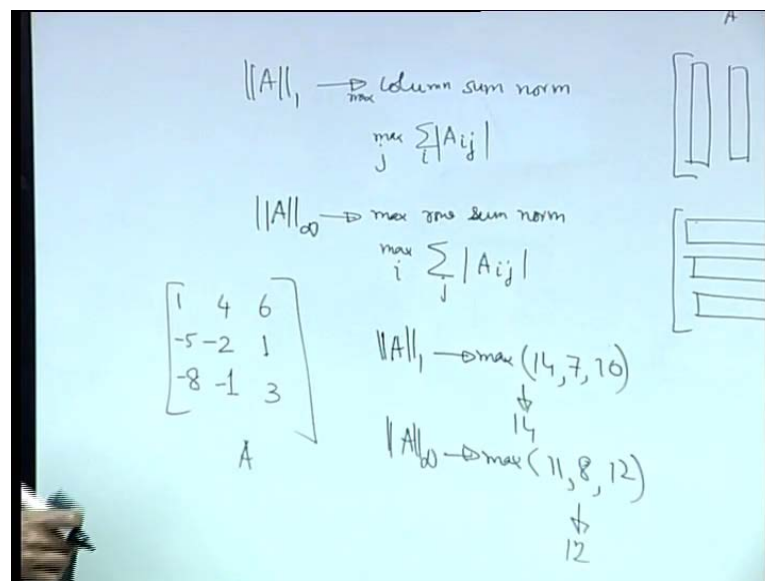 A
||A||₁ → max column sum norm
max j Σ i |Aij|
||A||∞ → max row sum norm
max i Σ j |Aij|
1 4 6
-5 -2 1
-8 -1 3
A
||A||₁ → max (14, 7, 10)
↓
14
||A||∞ → max (11, 8, 12)
↓
12